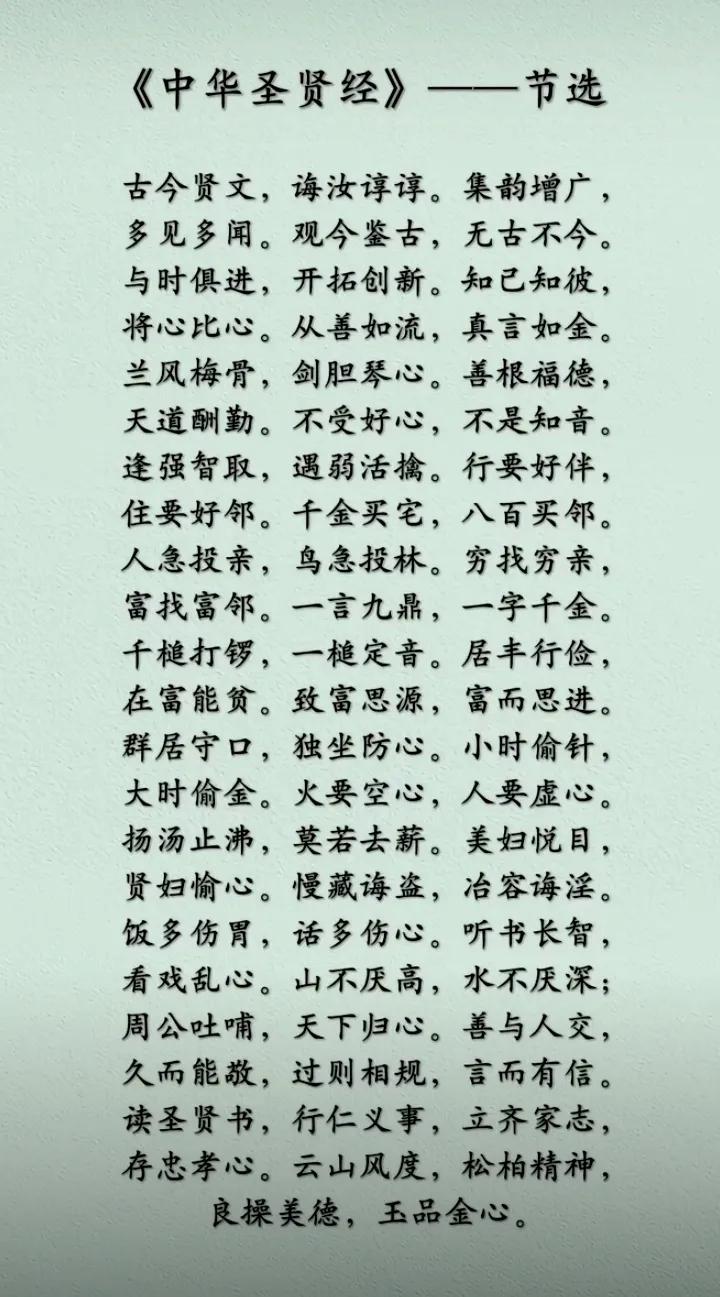 《中华圣贤经》——节选
古今贤文，诲汝谆谆。集韵增广，
多见多闻。观今鉴古，无古不今。
与时俱进，开拓创新。知己知彼，
将心比心。从善如流，真言如金。
兰风梅骨，剑胆琴心。善根福德，
天道酬勤。不受好心，不是知音。
逢强智取，遇弱活擒。行要好伴，
住要好邻。千金买宅，八百买邻。
人急投亲，鸟急投林。穷找穷亲，
富找富邻。一言九鼎，一字千金。
千槌打锣，一槌定音。居丰行俭，
在富能贫。致富思源，富而思进。
群居守口，独坐防心。小时偷针，
大时偷金。火要空心，人要虚心。
扬汤止沸，莫若去薪。美妇悦目，
贤妇愉心。慢藏诲盗，冶容诲淫。
饭多伤胃，话多伤心。听书长智，
看戏乱心。山不厌高，水不厌深；
周公吐哺，天下归心。善与人交，
久而能敬，过则相规，言而有信。
读圣贤书，行仁义事，立齐家志，
存忠孝心。云山风度，松柏精神，
良操美德，玉品金心。